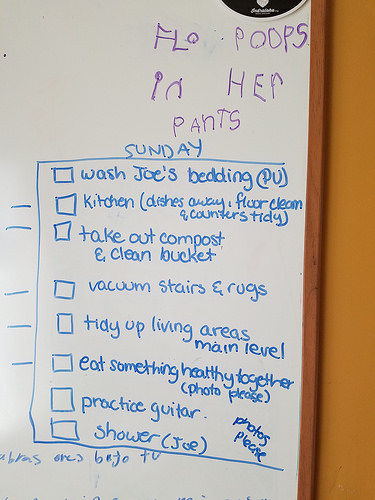 FLO POOPS
in HER
PANTS
SUNDAY
wash Joe's bedding (PU)
Kitchen (dishes away, floor clean
& counters tidy)
take out compost
& clean bucket
vacuum stairs & rugs
tidy up living areas
main level
eat something healthy together
(photo please)
practice guitar.
shower (Joe)
photos
please